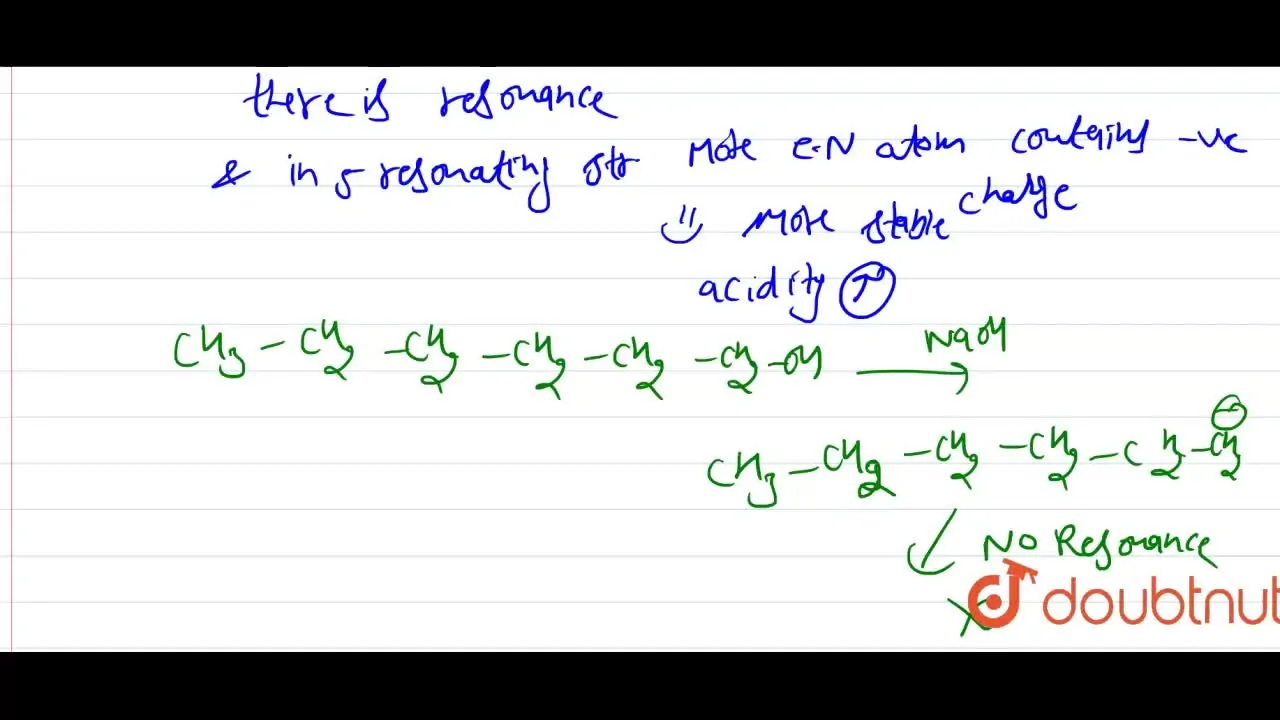 there is resonance
& in 5 resonating str More E.N atom contains -ve charge
More stable
acidity ↑
CH3 - CH2 - CH2 - CH2 - CH2 - CH2 - OH → NaOH
CH3 - CH2 - CH2 - CH2 - CH2 - CH2 ⊖
No Resonance
X
doubtnut